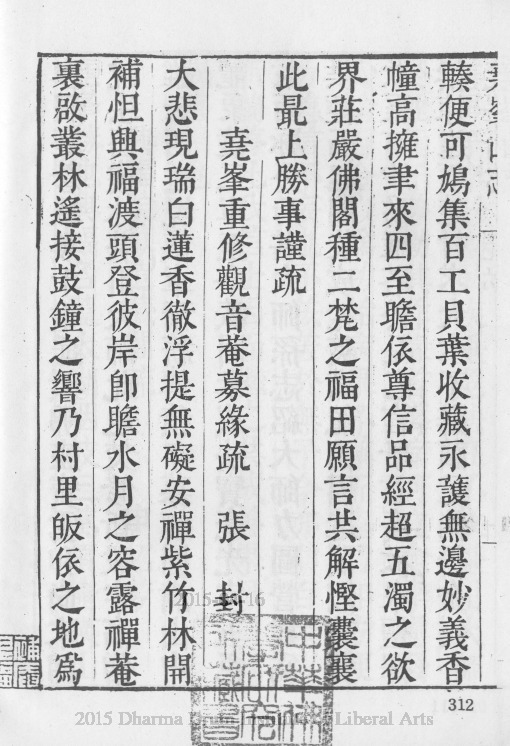 輳便可鳩集百工貝葉收藏永護無邊妙義香
幢高擁聿來四至瞻依尊信品經超五濁之欲
界莊嚴佛閣種二梵之福田願言共解慳囊襄
此最上勝事謹疏
堯峯重修觀音菴募緣疏 張 封
大悲現瑞白蓮香徹浮提無礙安禪紫竹林開
補怛興福渡頭登彼岸卽瞻水月之容露禪菴
裏啟叢林遙接鼓鐘之響乃村里皈依之地爲
312
2015 Dharma Drum Institute of Liberal Arts